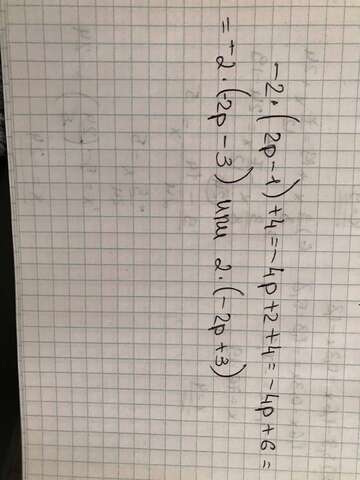 -2·(2p-1)+4=-4p+2+4=-4p+6=
=-2·(2p-3) или 2·(-2p+3)